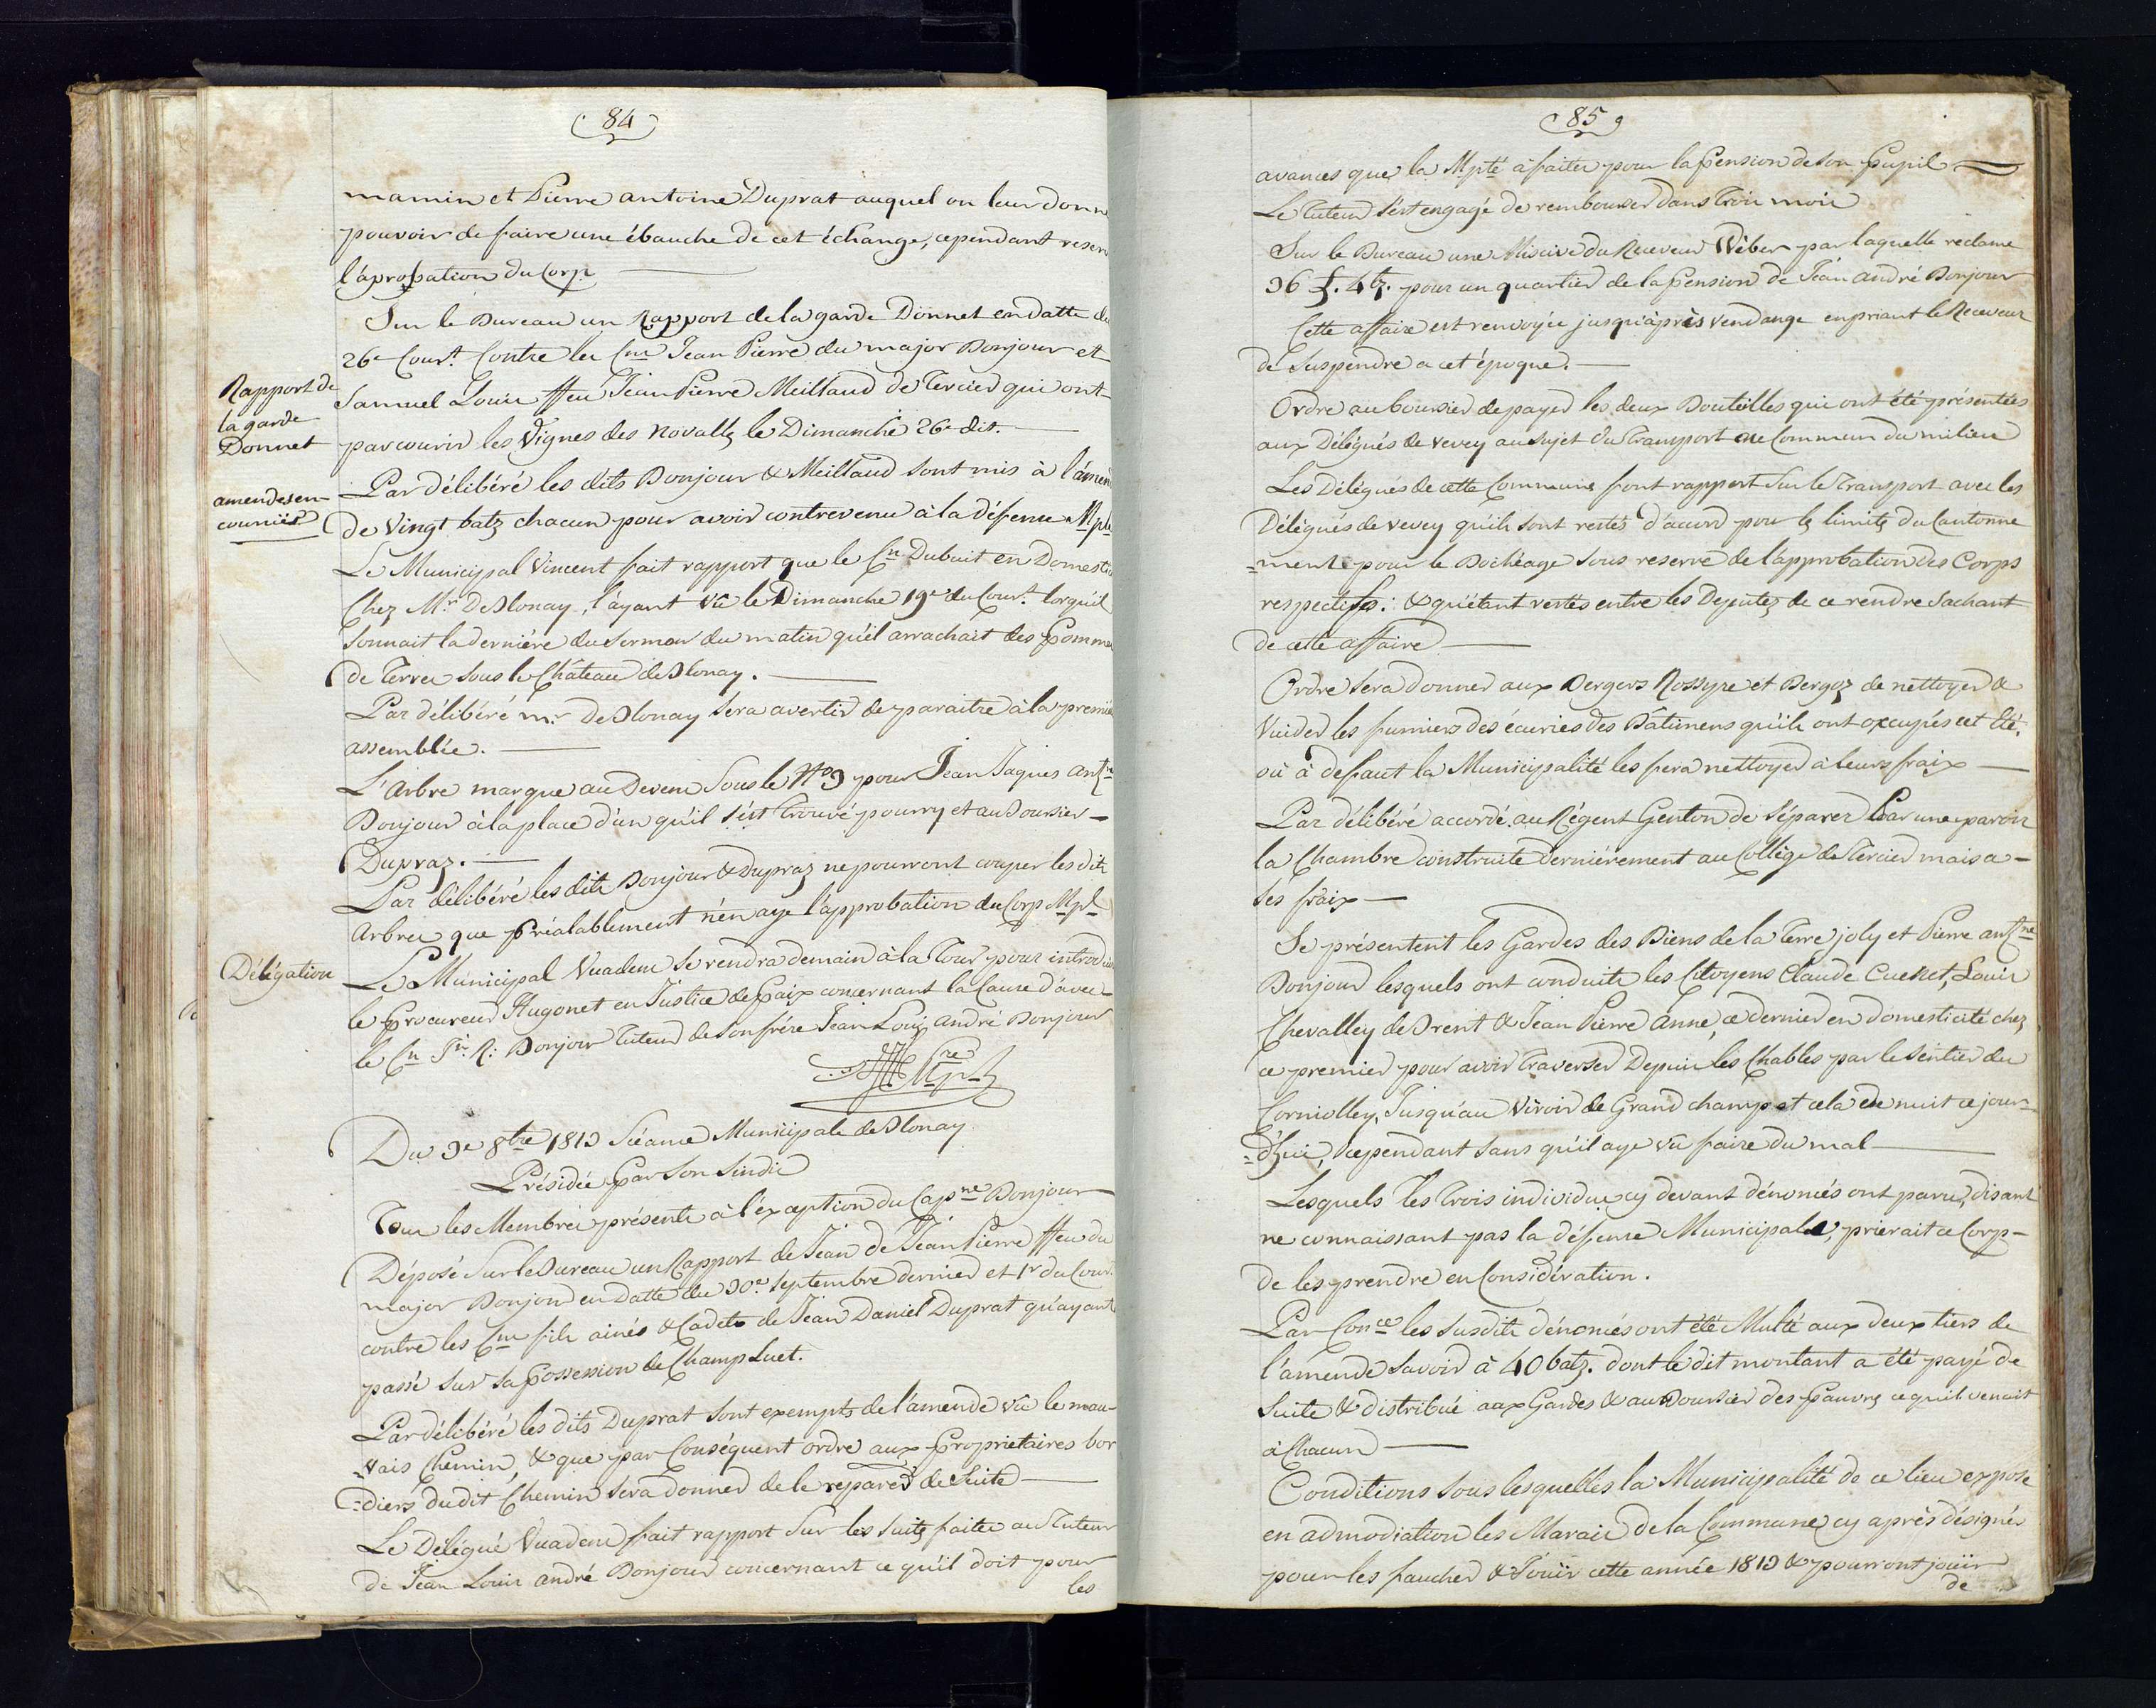 84
mamin et Pierre antoine Duprat auquel on leur donne
pouvoir de faire une ébauche de cet échange, cependant reserv
l'aprobation du Corp
Sur le Bureau un Rapport de la garde Donnet en datte du
26e Court Contre les Cns Jean Pierre du major Bonjour et
Rapport de
la garde
Donnet
Samuel Louis ffeu Jean Pierre Meillaud de Tercier qui ont
parcourir les Vignes des Novalles le Dimanche 26e dit.
amendes en-
courues
Par délibéré les dits Bonjour & Meillaud sont mis à l'amen
de Vingt batz chacun pour avoir contrevenu à la défense Mple
Le Municipal Vincent fait rapport que le Cn Dubuit en Domesti
Chez Mr DeBlonay, l'ayant Vû le Dimanche 19e du Court lorsqu'il
sonnait la derniére du Sermon du matin qu'il arrachait des Pomme
de Terres sous le Château de Blonay.
Par délibéré mr DeBlonay sera avertir de paraitre à la premiè
assemblée.
L'Arbre marque au Devens Sous le No 9 pour Jean Jaques Antne
Bonjour à la place d'un qu'il s'est Trouvé pourry et au Boursier
Dupraz.
Par délibéré les dits Bonjour & Dupraz ne pourront couper les dits
Arbres que préalablement n'en aye l'approbation du Corp Mpl
Délégation
Le Municipal Vuadens se rendra demain à la Tour pour introduire
le Procureur Hugonet en Justice de Paix concernant la Cause d'avec
le Cn Jn R: Bonjour Tuteur de son frére Jean Louis André Bonjour
Du 3e 8bre 1813 Séance Municipale de Blonay
Présidée par son Sindic
Tous les Membres présents à l'éxception du Capne Bonjour
Déposé sur le Bureau un Rapport de Jean de Jean Pierre ffeu du
major Bonjour en Datte du 30e septembre dernier et 1r du Court
contre les Cns fils ainés & Cadets de Jean Daniel Duprat qu'ayant
passé sur sa Possession de Champ Luet.
Par délibéré les dits Duprat sont exempts de l'amende vû le mau-
=vais Chemin, & que par Conséquent ordre aux Proprietaires bor
=diers du dit Chemin sera donner de le réparer de Suite
Le Délégué Vuadens fait rapport sur les suites faites au Tuteur
de Jean Louis André Bonjour concernant ce qu'il doit pour
les
85
avances que la Mpté à faites pour la Pension de son Pupil
Le Tuteur s'est engagé de rembourser dans Trois mois
Sur le Bureau une Missive du Receveur Wéber par laquelle réclame
36 f. 4 bz. pour un quartier de la Pension de Jean André Bonjour
Cette affaire est renvoyée jusqu'après Vendange en priant le Receveur
de suspendre a cet époque.
Ordre au boursier de payer les deux Bouteilles qui ont été présentées
aux Délégués de Vevey au sujet du Transport Commun du milieu
Les Délégués de cette Commune font rapport sur le Transport avec les
Délégués de Vevey qu'ils sont restés d'accord pour les limites du Cantonne
=ment pour le Bochéage sous reserve de l'approbation des Corps
respectifs: & qu'étant restés entre les Députes de ce rendre sachant
de cette affaire
Ordre sera donner aux Bergers Rossyre et Bergoz de nettoyer &
Vuider les fumiers des écuries des Bâtimens qu'ils ont occupés cet été,
où à défaut la Municipalité les fera nettoyer à leurs fraix
Par délibéré accordé au Régent Genton de séparer Par une paroir
la Chambre construite derniérement au Collége de Tercier mais a
sés fraix
Se présentent les Gardes des Biens de la Terre joly et Pierre antne
Bonjour lesquels ont conduits les Citoyens Claude Cuenet, Louis
Chevalley de Brent & Jean Pierre Anne, ce dernier en domesticité chez
ce premier pour avoir Traverser Depuis les Chables par le sentier du
Corniolley, Jusqu'au Viroir de Grand champ et cela de nuit ce jour-
=d'hui, cependant sans qu'il aye vû faire du mal
Lesquels les Trois individus cy devant dénomés ont paru, disant
ne connaissant pas la défense Municipale, prierait ce Corp
de les prendre en Considération.
Par Conce les susdits dénomés ont été Multé aux deux tiers de
l'amende savoir à 40 batz. dont le dit montant a été payé de
suite & distribué aux Gardes & au Boursier des Pauvres ce qu'il venait
à Chacun
Conditions sous lesquelles la Municipalité de ce lieu expose
en admodiation les Marais de la Commune cy après désignés
pour les faucher & Jouïr cette année 1813 & pourront jouïr
de